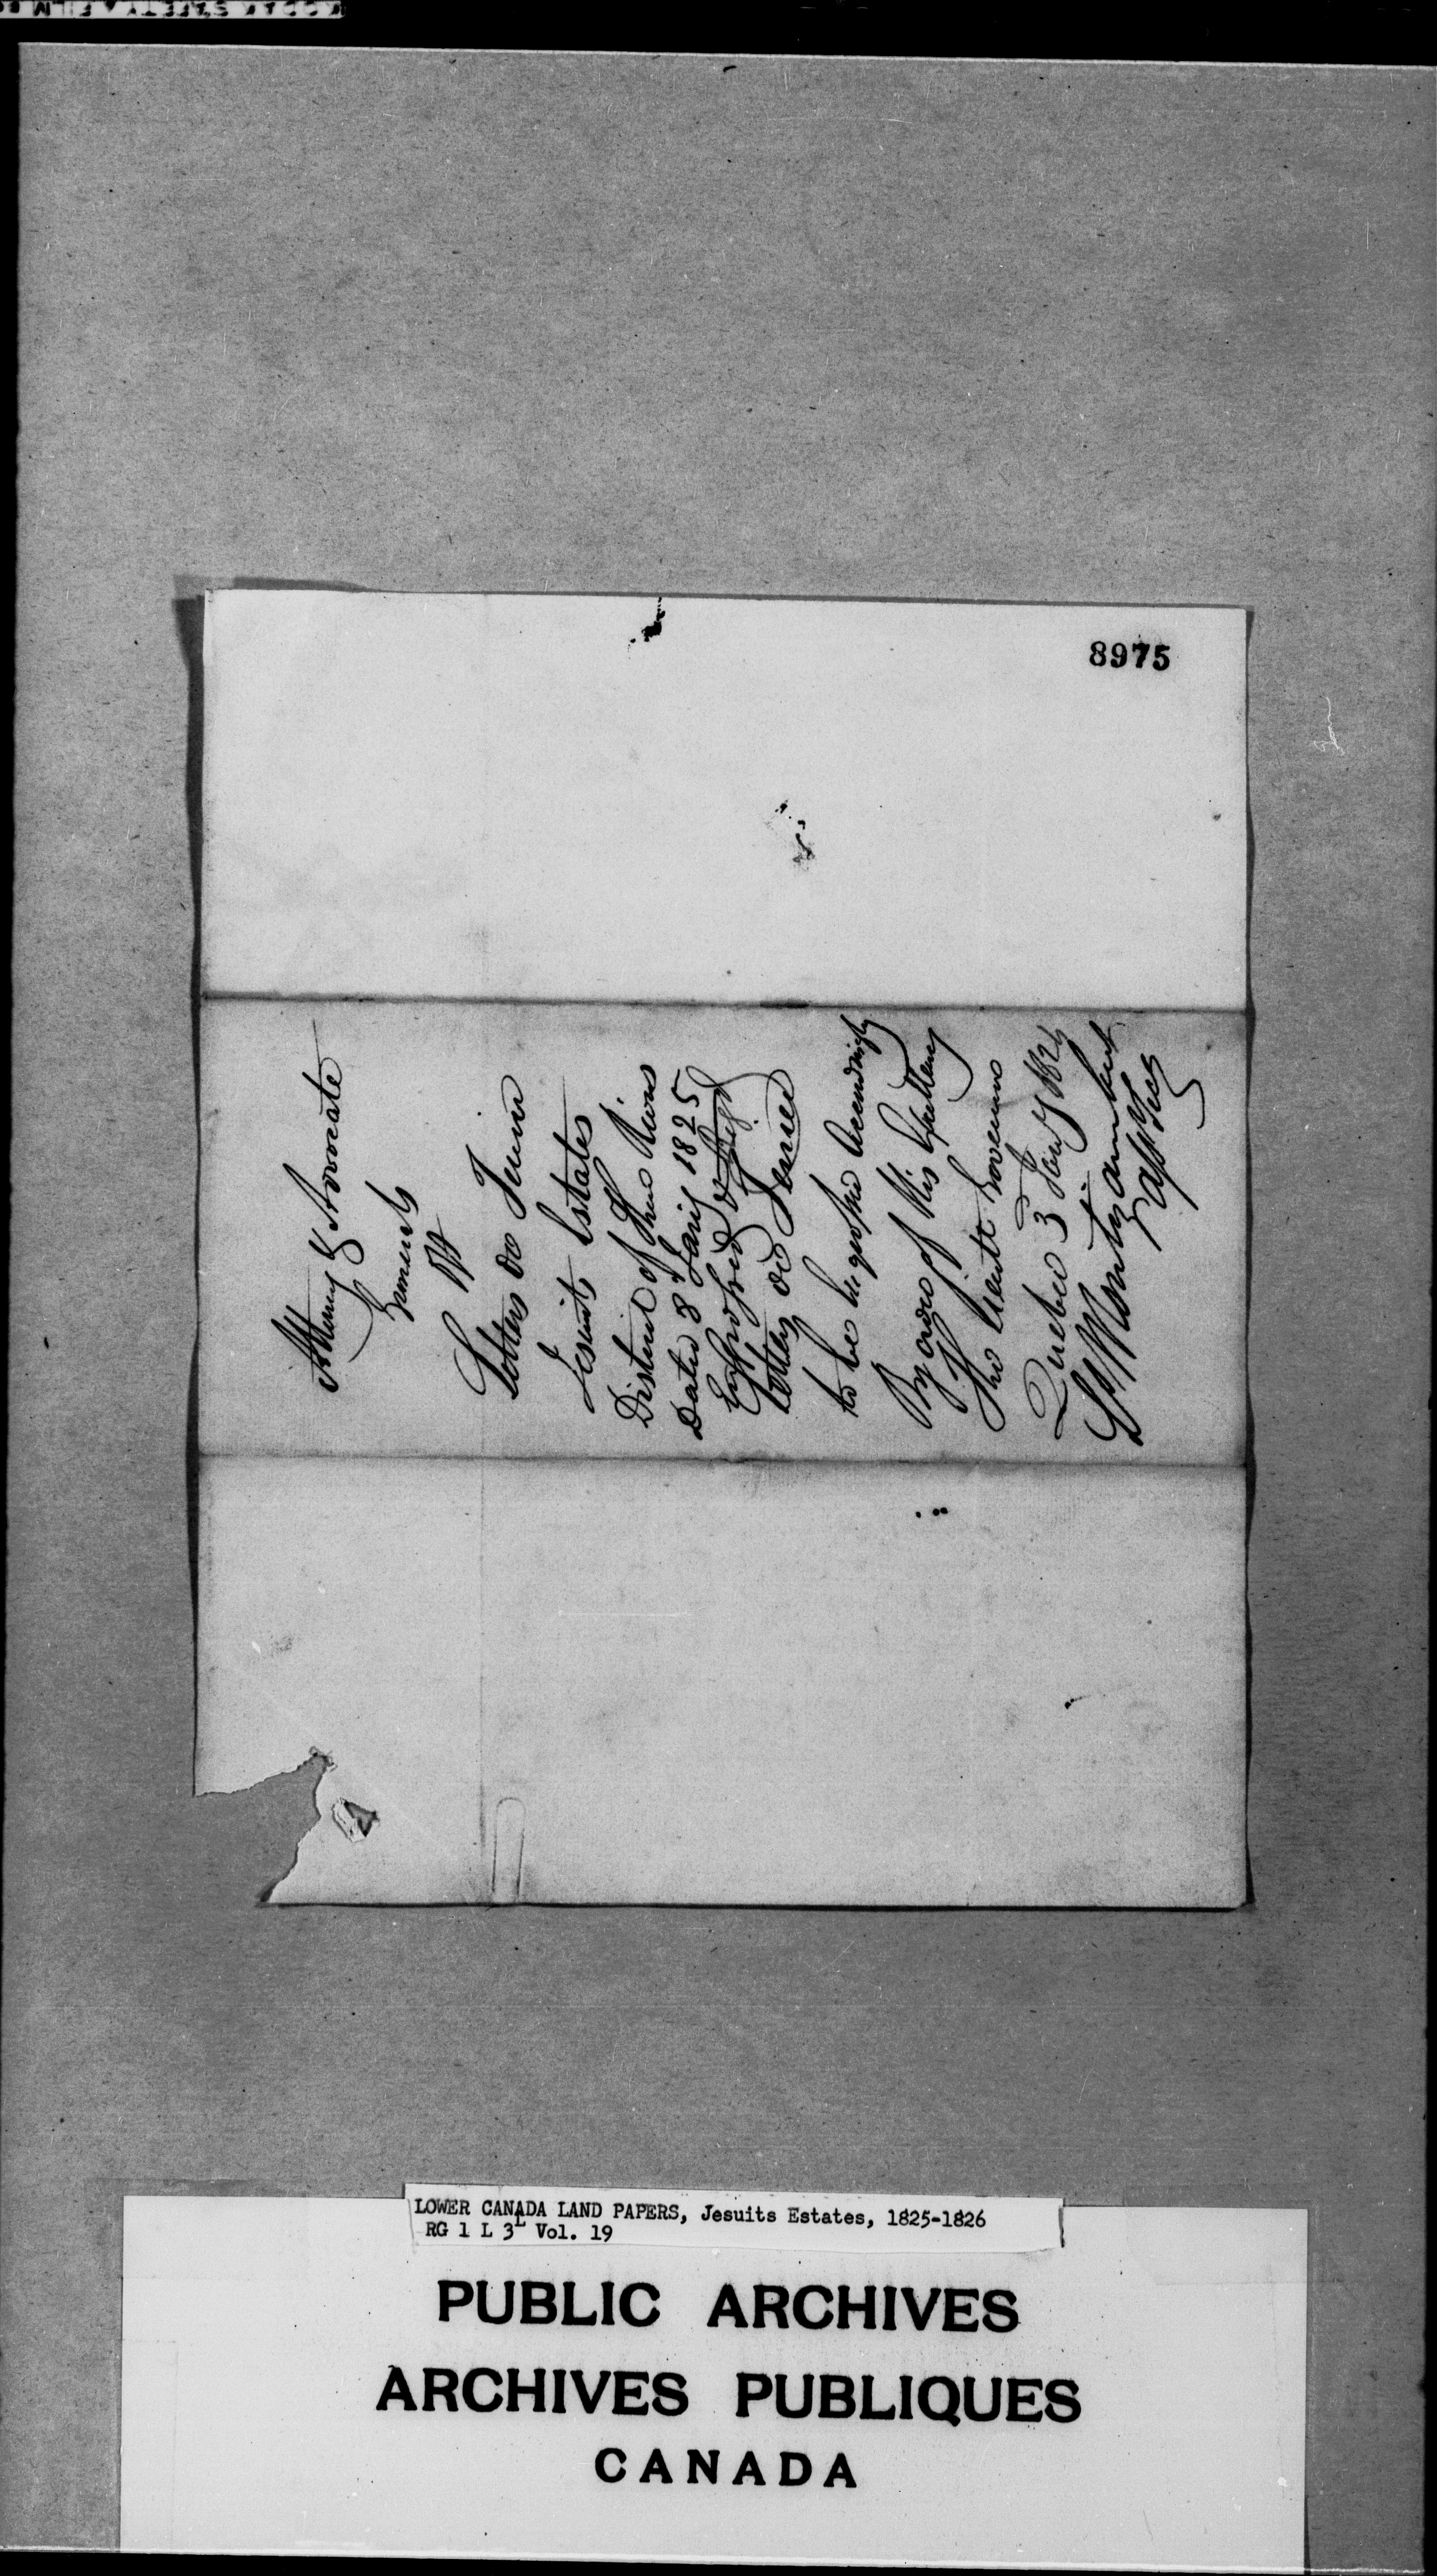 8975
Attorney & Advocate
Generals
Letters de Terrier
Jesuits Estates
District of Three Rivers
Dated 8th Jany 1825
Letters de Terrier
to be Accordingly
By order of His Excellency
The Lieutt Governor
Quebec 3 Jany
Ls Montizambert
Asst Secy
LOWER CANADA LAND PAPERS, Jesuits Estates, 1825-1826
RG 1 L 3L Vol. 19
PUBLIC ARCHIVES
ARCHIVES PUBLIQUES
CANADA